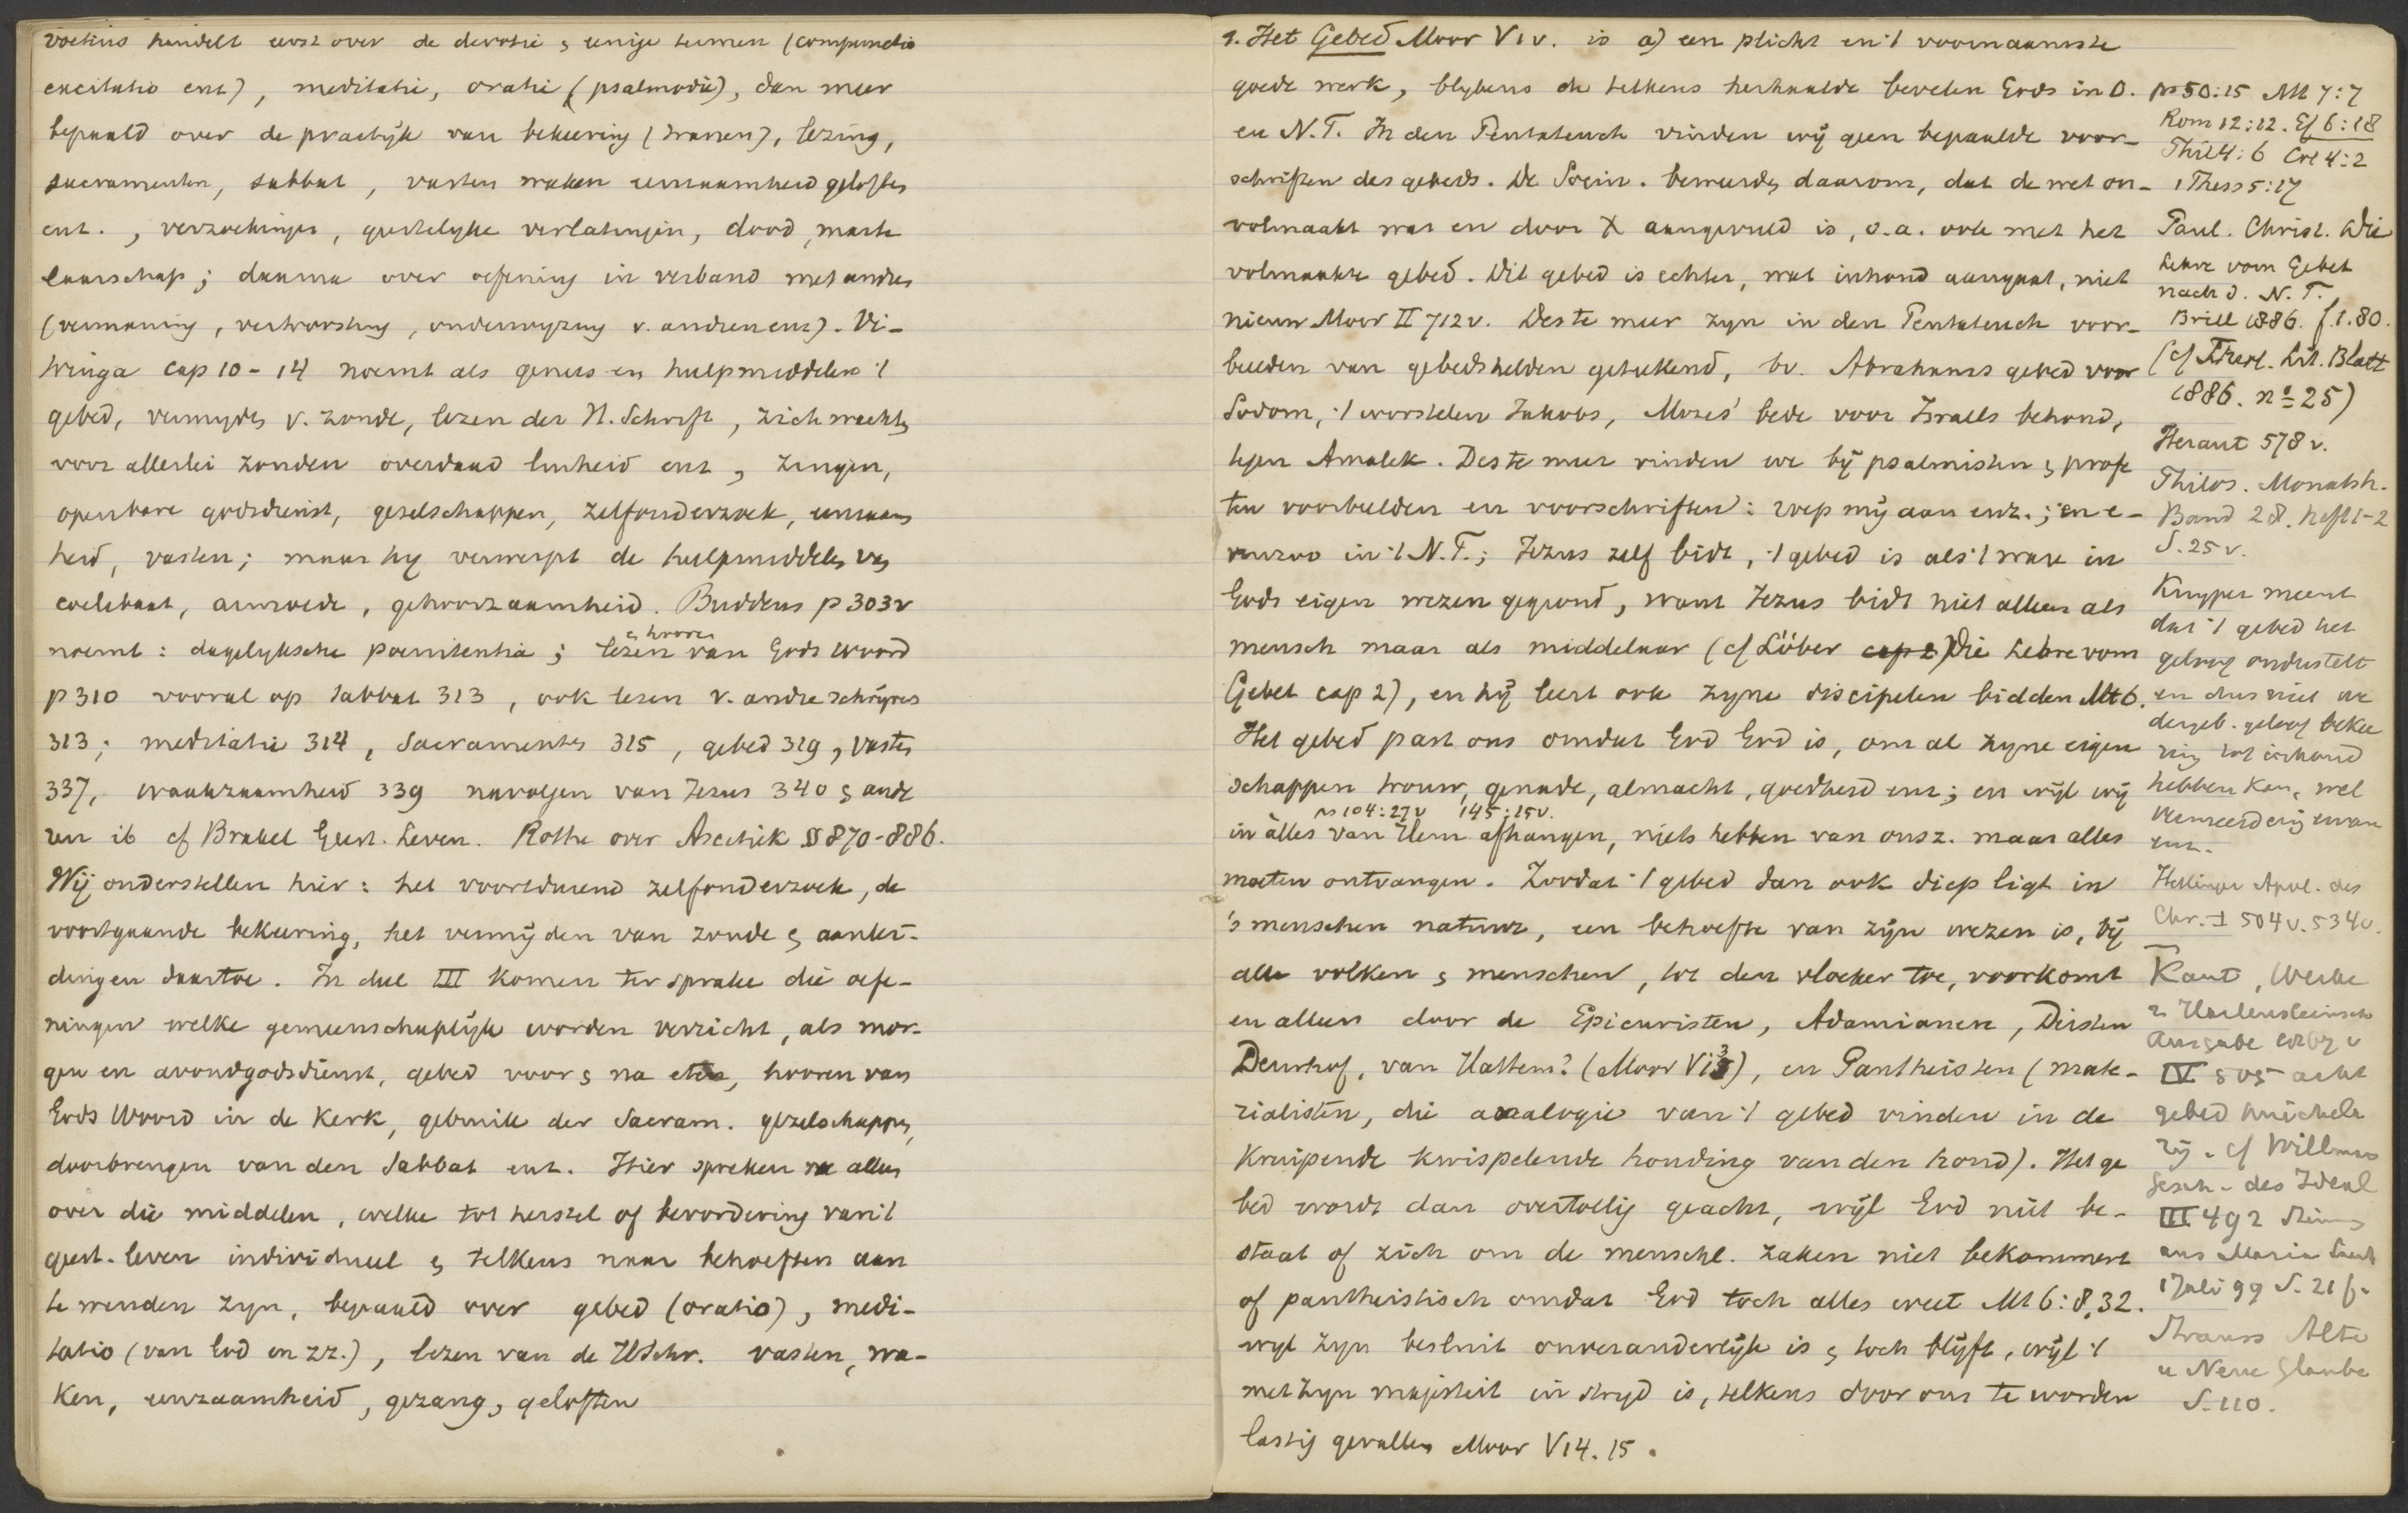 Voetius handelt eerst over de devotie & enige termen (compunctio
excitatio enz), meditatie, oratie (psalmodie), dan meer
bepaald over de practijk van bekeering (tranen), lezing,
sacramenten, sabbat, vasten waken eenzaamheid geloften
enz., verzoekingen, geestelijke verlatingen, dood, marte
laarschap; daarna over oefening in verband met andres
(vermaning, vertroosting, onderwyzing v. andren enz). Vi-
tringa cap 10-14 noemt als genees en hulpmiddelen 't
gebed, vermyden v. zonde, lezen der H. Schrift, zich wachten
voor allerlei zonden overdaad luiheid enz, zingen,
openbare godsdienst, gezelschappen, zelfonderzoek, eenzaam
heid, vasten; maar hy verwerpt de hulpmiddelen van
coelibaat, armoede, gehoorzaamheid. Buddeus p 303v
noemt: dagelyksche poenitentia; lezen & hooren van Gods Woord
p 310 vooral op sabbat 313, ook lezen v. andre schrijvers
313; meditatie 314, Sacramenten 315, gebed 319, vasten
337, waakzaamheid 339 navolgen van Jezus 340 & ande
ren ib cf Brakel Geest. Leven. Rothe over Ascetik §§ 870-886.
Wij onderstellen hier: het voortdurend zelfonderzoek, de
voortgaande bekeering, het vermijden van zonde & aanlei-
dingen daartoe. In deel III komen ter sprake die oefe-
ningen welke gemeenschaplijk worden verricht, als mor-
gen en avondgodsdienst, gebed voor & na eten, hooren van
Gods Woord in de Kerk, gebruik der Sacram. gezelschappen,
doorbrengen van den Sabbat enz. Hier spreken we alleen
over die middelen, welke tot herstel of bevordering van 't
geest. leven individueel & telkens naar behoeften aan
te wenden zyn, bepaald over gebed (oratio), medi-
tatio (van God en zz.), lezen van de H Schr. vasten, wa-
ken, eenzaamheid, gezang, geloften
1. Het Gebed Moor V 1v. is a) een plicht en 't voornaamste
goede werk, blykens de telkens herhaalde bevelen Gods in O.
en N.T. In den Pentateuch vinden wij geen bepaalde voor-
schriften des gebeds. De Socin. beweerden daarom, dat de wet on-
volmaakt was en door X aangevuld is, o.a. ook met het
volmaakte gebed. Dit gebed is echter, wat inhoud aangaat, niet
nieuw Moor II 712v. Des te meer zyn in den Pentateuch voor-
beelden van gebedshelden getekend, bv. Abrahams gebed voor
Sodom, 't worstelen Jakobs, Mozes' bede voor Israels behoud,
tegen Amalek. Des te meer vinden we bij psalmisten & profe
ten voorbeelden en voorschriften: roep mij aan enz.; en e-
venzoo in 't N.T.; Jezus zelf bidt, 't gebed is als 't ware in
Gods eigen wezen gegrond, want Jezus bidt niet alleen als
mensch maar als middelaar (cf Löber cap 2) Die Lehre vom
Gebet cap 2), en hij leert ook zyne discipelen bidden Mt 6.
Het gebed past ons omdat God God is, om al zyne eigen
schappen trouw, genade, almacht, goedheid enz; en wijl wij
ps 104:27v 145:15v.
in alles van Hem afhangen, niets hebben van onsz. maar alles
moeten ontvangen. Zoodat 't gebed dan ook diep ligt in
's menschen natuur, een behoefte van zijn wezen is, bij
alle volken & menschen, tot den vloeker toe, voorkomt
en alleen door de Epicuristen, Adamianen, Deisten
Deurhof, van Hattem? (Moor V 13), en Pantheisten (mate-
rialisten, die analogie van 't gebed vinden in de
kruipende kwispelende houding van den hond). Het ge
bed wordt dan overtollig geacht, wijl God niet be-
staat of zich om de menschl. zaken niet bekommert
of pantheistisch omdat God toch alles weet Mt 6:8,32.
wyl zyn besluit onveranderlijk is & toch blijft, wijl 't
met zyn majesteit in stryd is, telkens door ons te worden
lastig gevallen Moor V 14.15.
ps 50:15 Mt 7:7
Rom 12:12. Ef 6:18
Phil 4:6 Col 4:2
1 Thess 5:17
Paul. Christ. Die
Lehre vom Gebet
nach d. N.T.
Brill 1886. f.1.80.
(cf Theol. Lit. Blatt
1886. no 25)
Heraut 578v.
Philos. Monatsh.
Band 28. heft 1-2
S. 25v.
Kuyper meent
dat 't gebed het
geloof onderstelt
en dus niet we
dergeb. geloof bekee
ring tot inhoud
hebben kan, wel
vermeerdering ervan
enz.
Hettinger Apol. des
Chr. I 504v. 534v.
Kant, Werke
in Hartensteinsche
Ausgabe
IV 505 acht
gebed huichela
rij. cf Willmann
Gesch. des Ideal
III 492 Stimmen
aus Maria Laach
1 Juli 99 S. 21 f.
Strauss Alte
u Neue Glaube
S. 110.